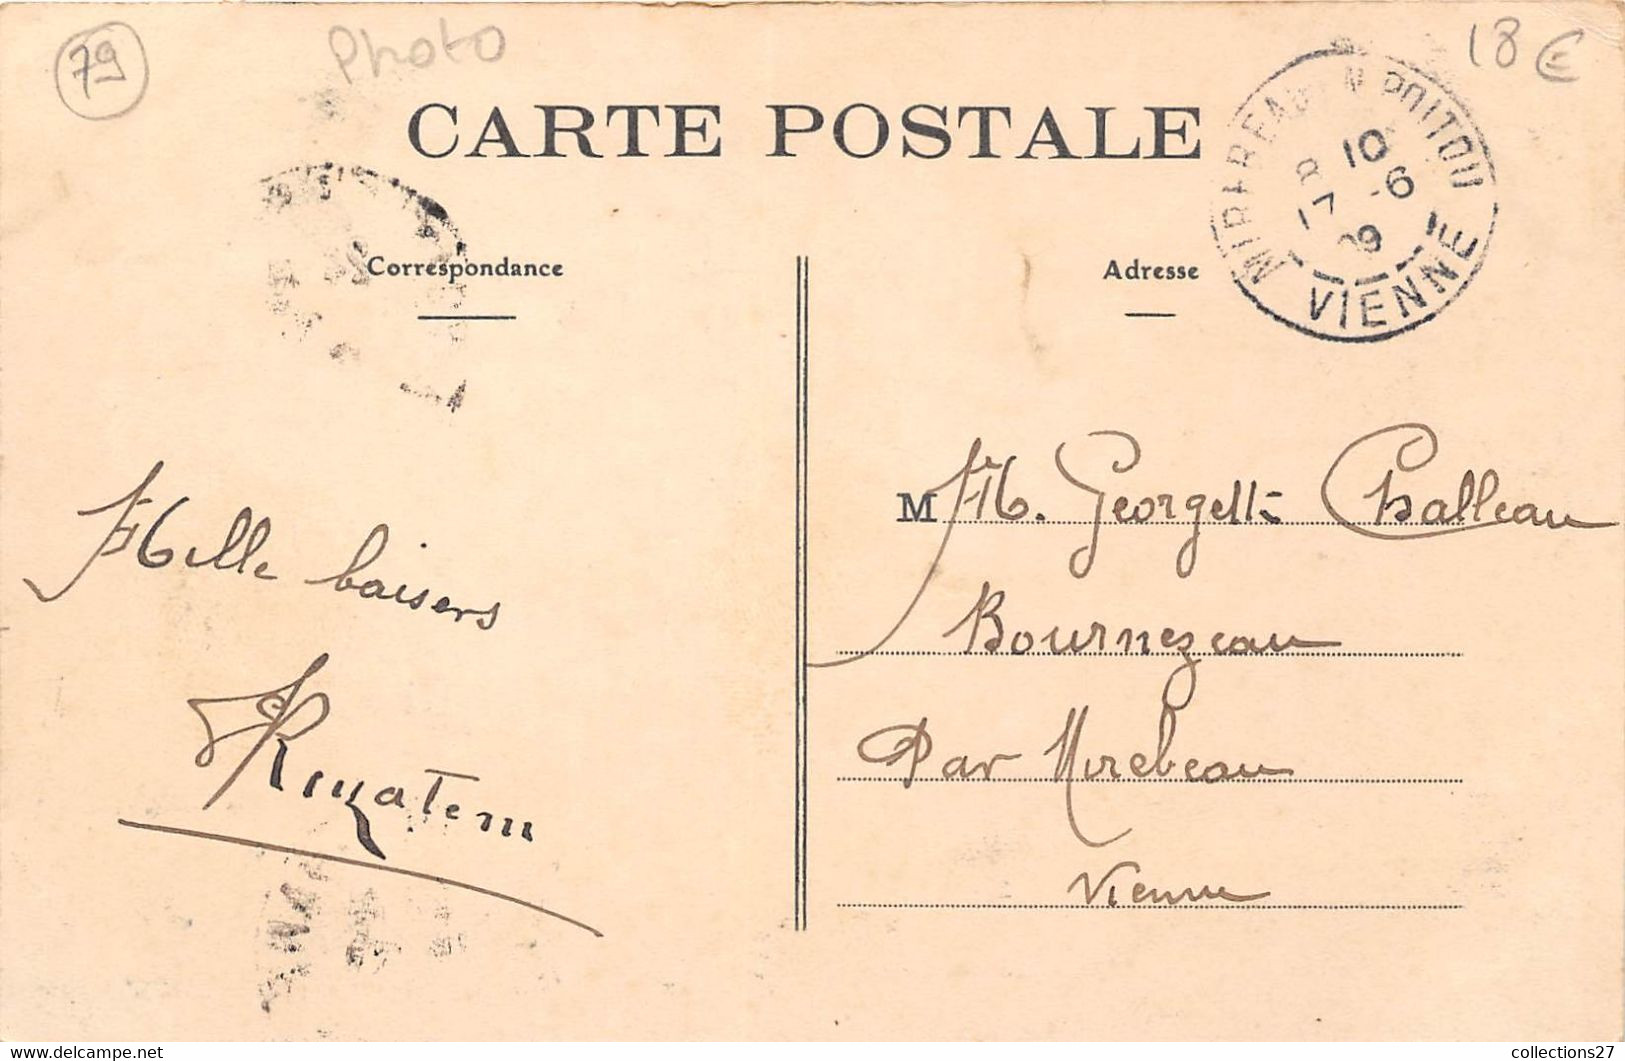 79
Photo
18 €
CARTE POSTALE
MIREBEAU-EN-POITOU
10
17 -6
09
VIENNE
Correspondance
Adresse
Mille baisers
M M. Georgette Challeau
Bournezeau
Par Mirebeau
Vienne
collections27